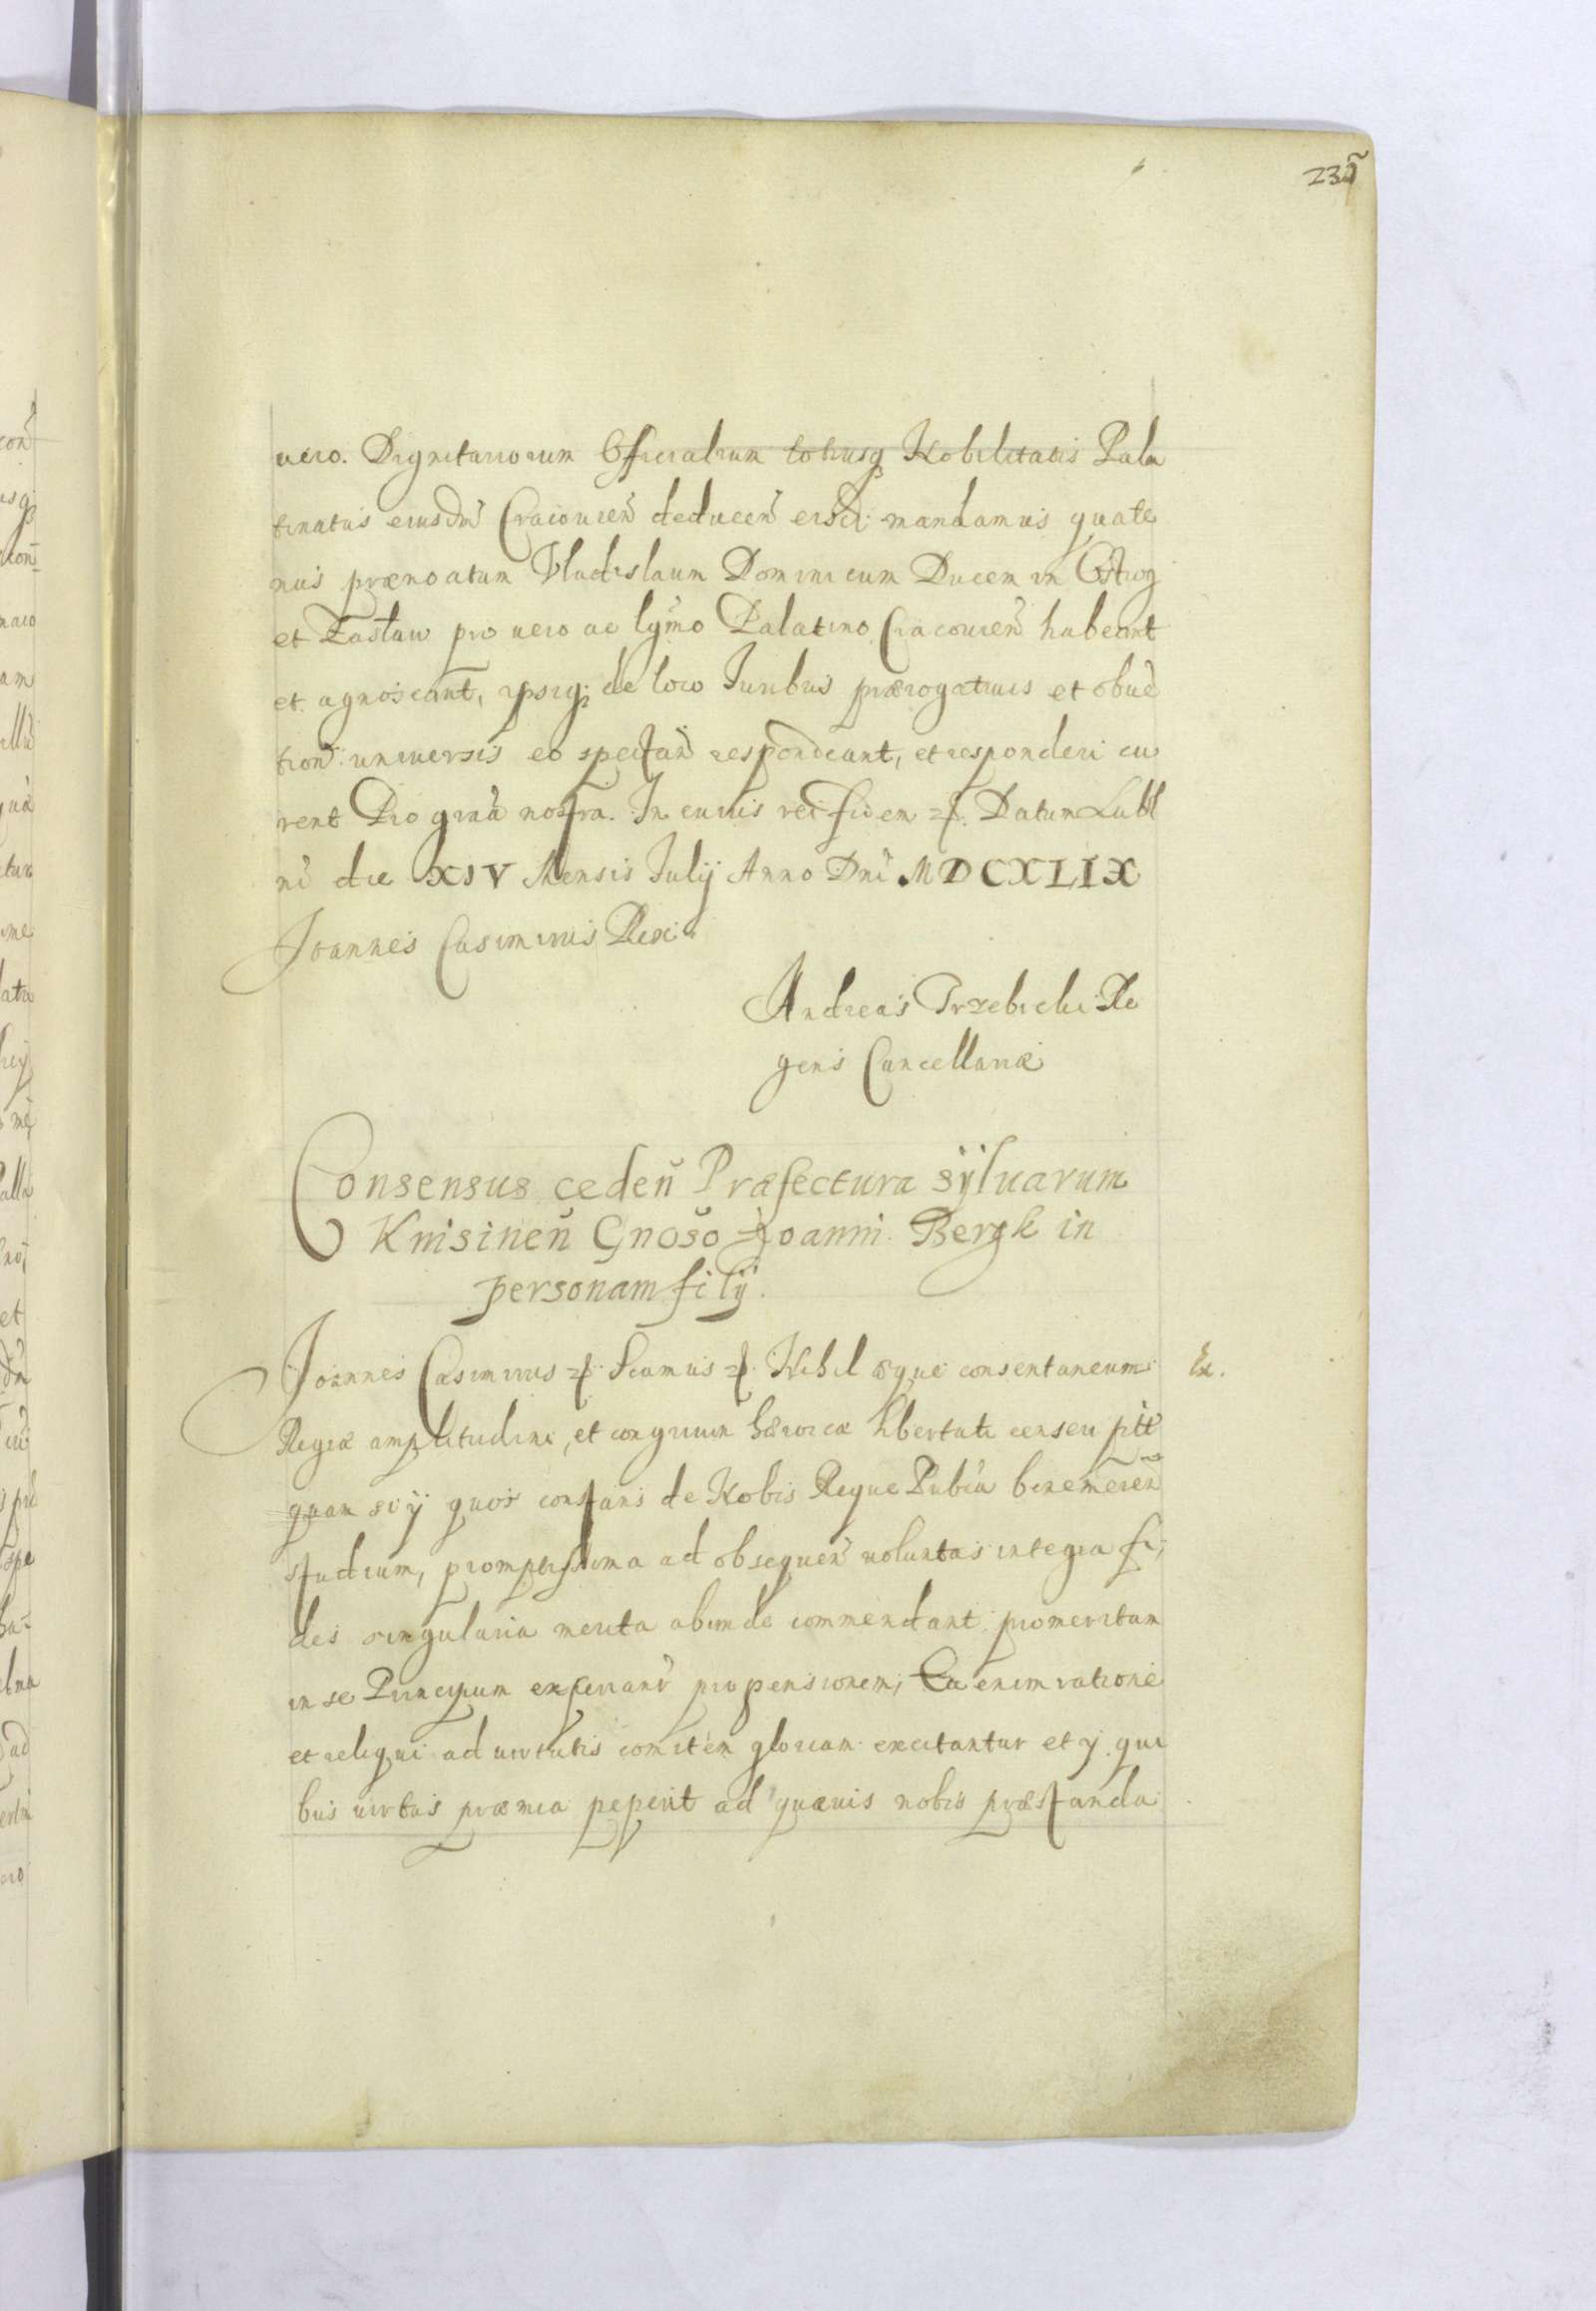 235
uero. Dignitariorum Officialium totiusq Nobilitatis Pala
tinatus eiusdm̃ Cracouien̄ deducen̄ eisd: mandamus quate
nus prænoatum Vladislaum Dominicum Ducem in Ostrog
et Zasław pro uero ac lgĩmo Palatino Cracouien̄ habeant
et agnoscant, ipsiq; de loco Iuribus prærogatiuis et obuẽ
tion̄ uniuersis eo spectan̄ respondeant, et responderi cu
rent Pro grãa nostra. In cuius rei fidem Datum Lubl
nĩ die XIV Mensis Iulij Anno Dnĩ MDCXLIX
Joannes Casimirus Rex
Andreas Trzebicki Re
gens Cancellariæ
Consensus ceden̄ Præfectura syluarum
Knisinen̄ Gnoso Joanni Bergk in
personam filij.
Joannes Casimirus Scamus Nihil æque consentaneum Ex.
Regiæ amplitudini, et congruum heroicæ libertati censeri ptt
quam si ij quos constans de Nobis Reque Pubca benemeren̄
studium, promptissima ad obsequen̄ uoluntas integra fi,
des singularia merita abunde commendant promeritam
in se Principum experianr̃ propensionem, Ea enim ratione
et reliqui ad uirtutis comitem gloriam excitantur et ij qui
bus uirtus præmia peperit ad quæuis nobis præstanda